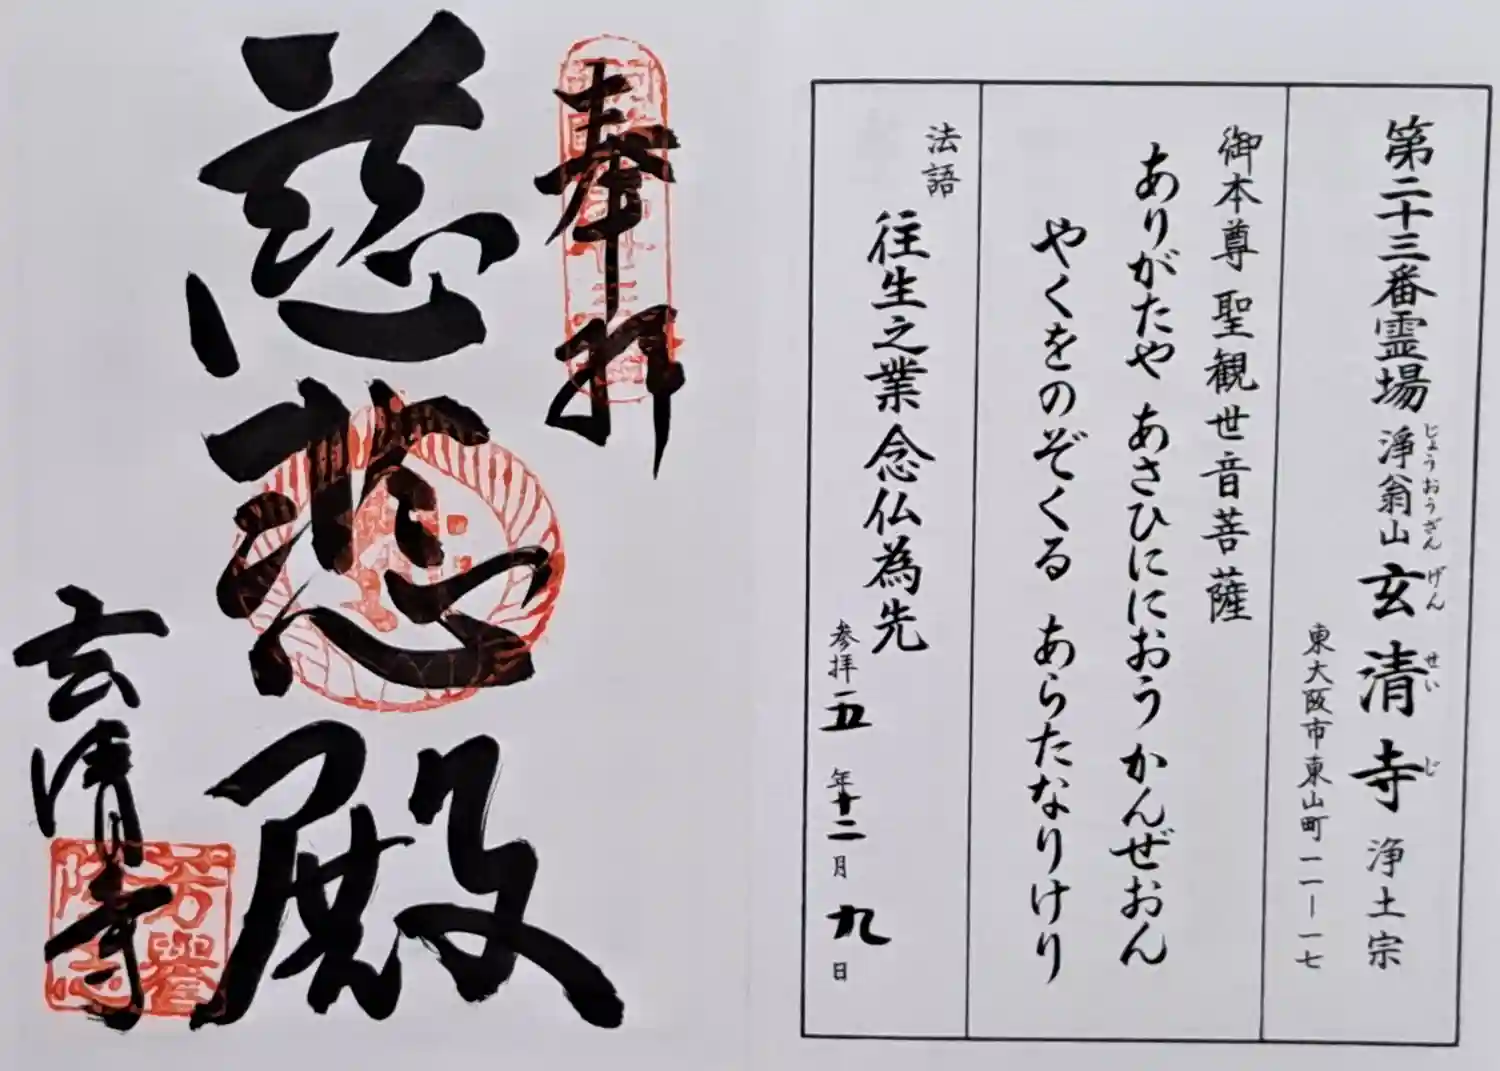 第二十三番霊場 浄翁山 玄清寺 浄土宗
じょうおうざん げんせいじ
東大阪市東山町一一ー一七
御本尊 聖観世音菩薩
ありがたや あさひににおう かんぜおん
やくをのぞくる あらたなりけり
法語
往生之業 念仏為先
参拝 五年十二月九日
奉拝
慈悲殿
玄清寺